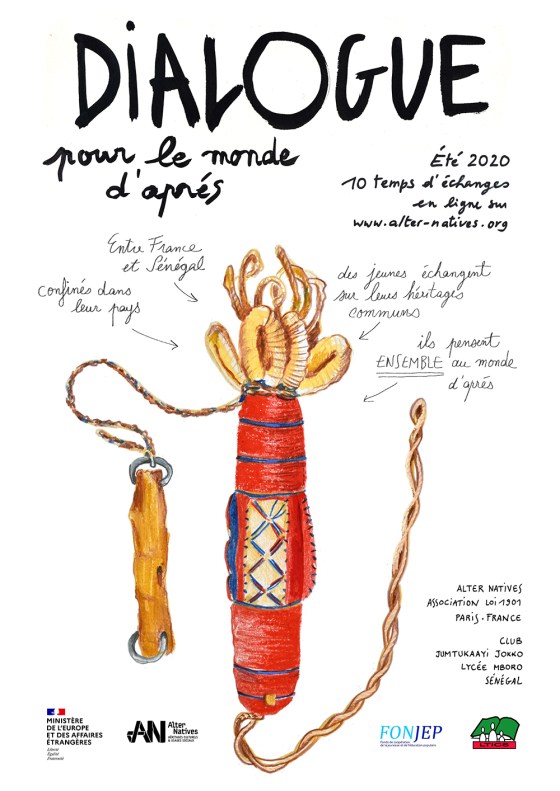 DiALOGUE
pour le monde
d'après
Été 2020
10 temps d'échanges
en ligne sur
www.alter-natives.org
Entre France
et Sénégal
Confinés dans
leur pays
des jeunes échangent
sur leurs héritages
communs
ils pensent
ENSEMBLE au monde
d'après
ALTER NATIVES
ASSOCIATION LOI 1901
PARIS. FRANCE
CLUB
JUMTUKAAYI JOKKO
LYCÉE MBORO
SÉNÉGAL
MINISTÈRE
DE L'EUROPE
ET DES AFFAIRES
ÉTRANGÈRES
Liberté
Égalité
Fraternité
AN
Alter
Natives
HÉRITAGES CULTURELS
& USAGES SOCIAUX
FONJEP
Fonds de coopération
de la jeunesse et de l'éducation populaire
LTICS